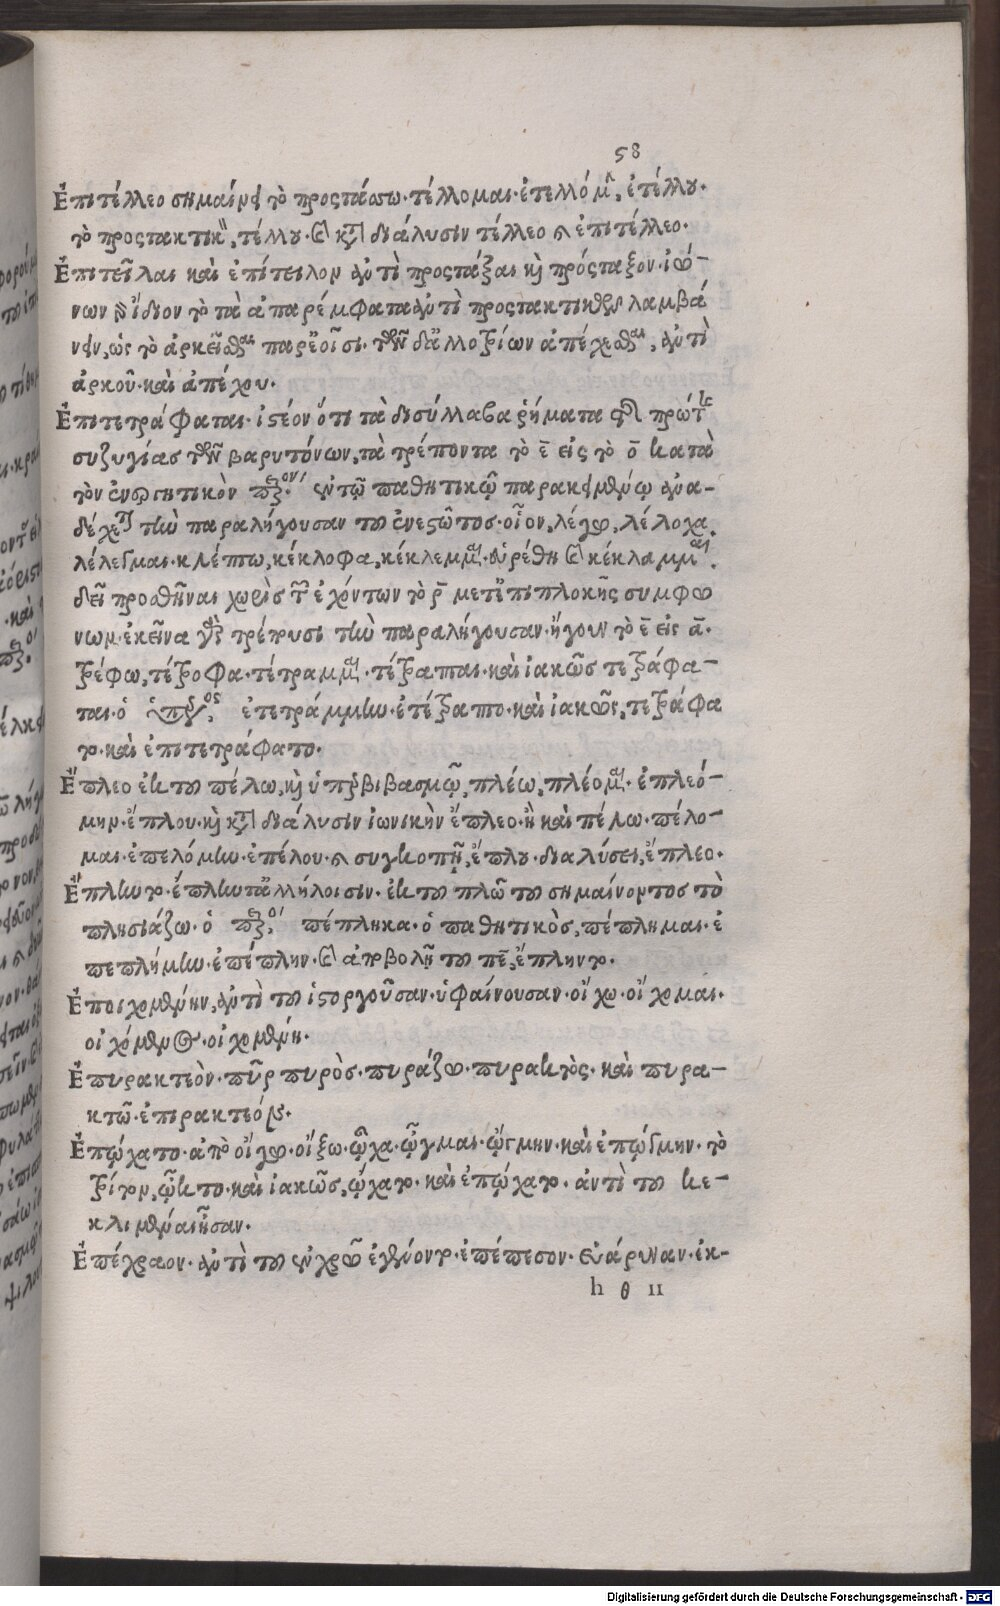 58
Ἐπιτέλλεο σημαίνει τὸ προστάσσω. τέλλομαι. ἐτελλόμην, ἐτέλλου.
τὸ προστακτικὸν, τέλλου. καὶ κατὰ διάλυσιν τέλλεο καὶ ἐπιτέλλεο.
Ἐπιτεῖλαι καὶ ἐπίτειλον ἀντὶ προστάξαι καὶ πρόσταξον. ἰώ-
νων δὲ ἴδιον τὸ τὰ ἀπαρέμφατα ἀντὶ προστακτικῶν λαμβά
νειν, ὡς τὸ ἀρκεῖσθαι παρ' οἷσι. τῶν δ' ἀλλοτρίων ἀπέχεσθαι, ἀντὶ
ἀρκοῦ. καὶ ἀπέχου.
Ἐπιτετράφαται. ἰστέον ὅτι τὰ δισύλλαβα ῥήματα τῆς πρώτης
συζυγίας τῶν βαρυτόνων, τὰ τρέποντα τὸ ε̄ εἰς τὸ ο̄ κατὰ
τὸν ἐνεργητικὸν παρακείμενον, ἐν τῷ παθητικῷ παρακειμένῳ ἀνα-
δέχεται τὴν παραλήγουσαν τοῦ ἐνεστῶτος. οἷον, λέγω, λέλοχα
λέλεγμαι. κλέπτω, κέκλοφα, κέκλεμμαι. εὑρέθη καὶ κέκλαμμαι.
δεῖ προσθῆναι χωρὶς τῶν ἐχόντων τὸ ρ̄ μετ' ἐπιπλοκῆς συμφώ
νων. ἐκεῖνα γὰρ τρέπουσι τὴν παραλήγουσαν. ἤγουν τὸ ε̄ εἰς ᾱ.
τρέφω, τέτροφα. τέτραμμαι. τέτραπται. καὶ ἰακῶς τετράφα-
ται. ὁ ὑπερσυντέλικος, ἐτετράμμην. ἐτέτραπτο. καὶ ἰακῶς, τετράφα
το. καὶ ἐπιτετράφατο.
Ἔπλεο ἐκ τοῦ πέλω, καὶ ὑπερβιβασμῷ, πλέω, πλέομαι. ἐπλεό-
μην. ἔπλου. καὶ κατὰ διάλυσιν ἰωνικὴν ἔπλεο. ἢ καὶ πέλω. πέλο-
μαι. ἐπελόμην. ἐπέλου. καὶ συγκοπῇ, ἔπλου. διαλύσει, ἔπλεο.
Ἔπληντο. ἔπληντ' ἀλλήλοισιν. ἐκ τοῦ πλῶ τοῦ σημαίνοντος τὸ
πλησιάζω. ὁ παρακείμενος, πέπληκα. ὁ παθητικὸς, πέπλημαι. ἐ
πεπλήμην. ἐπέπλην. καὶ ἀποβολῇ τοῦ πε̄, ἔπληντο.
Ἐποιχομένην, ἀντὶ τοῦ ἱστοργοῦσαν. ὑφαίνουσαν. οἴχω. οἴχομαι.
οἰχόμενος. οἰχομένη.
Ἐπυρακτεὸν. πῦρ πυρὸς. πυράζω. πυρακτὸς. καὶ πυρα-
κτῶ. ἐπιρακτεόν.
Ἐπῴχατο. ἀπὸ οἴγω. οἴξω. ᾦχα. ᾦγμαι. ᾤγμην. καὶ ἐπῴγμην. τὸ
τρίτον, ᾦκτο. καὶ ἰακῶς, ᾤχατο. καὶ ἐπῴχατο. ἀντὶ τοῦ κε-
κλιμέναι ἦσαν.
Ἐπέχραον. ἀντὶ τοῦ ἐν χρῷ ἐγένοντο. ἐπέπεσον. ἐβάρυναν. ἐκ-
h θ ιι
Digitalisierung gefördert durch die Deutsche Forschungsgemeinschaft - DFG